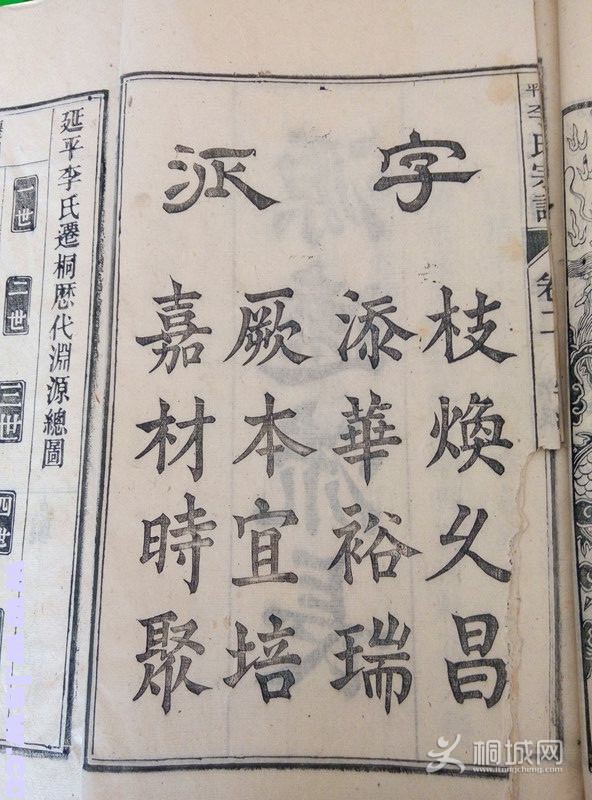 平李氏宗譜
卷二
字派
枝煥久昌
添華裕瑞
厥本宜培
嘉材時聚
延平李氏遷桐歷代淵源總圖
一世
二世
三世
四世
桐城网
itongcheng.com